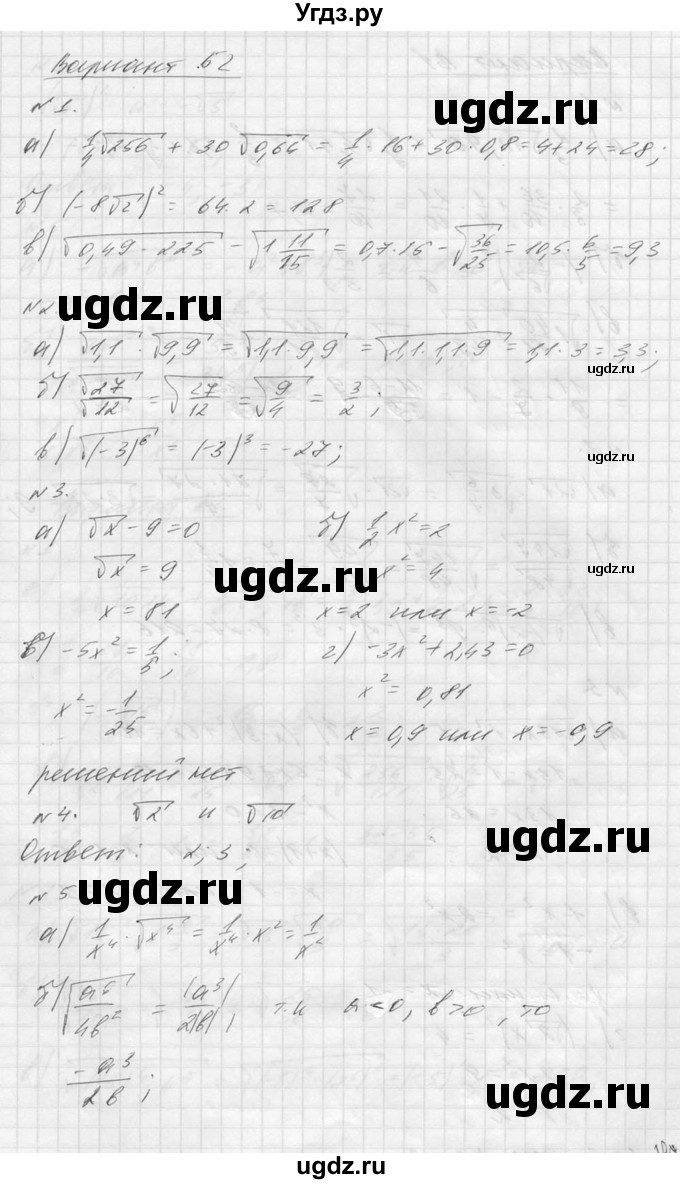 Угдз.ру
Вариант Б2
ugdz.ru
№1.
а) 1/4 √256 + 30 √0,64 = 1/4 · 16 + 30 · 0,8 = 4 + 24 = 28;
б) (-8√2)² = 64 · 2 = 128
в) √0,49 · 225 - √1 11/15 = 0,7 · 15 - √36/25 = 10,5 · 6/5 = 9,3
ugdz.ru
№2
а) √1,1 · √9,9 = √1,1 · 9,9 = √1,1 · 1,1 · 9 = 1,1 · 3 = 3,3;
ugdz.ru
б) √27/√12 = √27/12 = √9/4 = 3/2;
в) √(-3)⁶ = (-3)³ = -27;
ugdz.ru
№3.
а) √x - 9 = 0 б) 1/2 x² = 2
√x = 9 x² = 4
ugdz.ru ugdz.ru
x = 81 x = 2 или x = -2
в) -5x² = 1/5; г) -3x² + 2,43 = 0
x² = -1/25 x² = 0,81
x = 0,9 или x = -0,9
решений нет
№4. √2 и √10
ugdz.ru
Ответ: 2; 3;
№5
ugdz.ru
а) 1/x⁴ · √x⁴ = 1/x⁴ · x² = 1/x²
б) √a⁶/4b² = |a³|/2|b|, т.к a < 0, b > 0, то
-a³/2b;
ugdz.ru
ugdz.ru